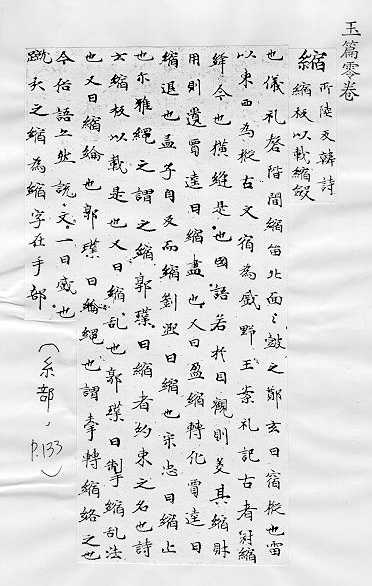 玉篇零卷
縮 所陸反韓詩
縮板以載縮斂
也儀礼磬階間縮霤北面〻皷之鄭玄曰宿樅也霤
以東西為樅古文宿為戚野王案礼記古者縮
縫今也撗縫是也國語若於目觀則美其縮財
用則遺賈逵曰縮盡也又曰盈縮轉化賈逵曰
縮退也孟子自反而縮劉熙曰縮也宋忠曰縮止
也尒雅繩之謂之縮郭璞曰縮者約束之名也詩
云縮板以載是也又曰縮乱也郭璞曰縮乱法
也又曰縮綸也郭璞曰綸繩也謂牽轉縮絡之也
今俗語上然說文一曰蹙也
蹴之縮為縮字在手部
(糸部, P.133)